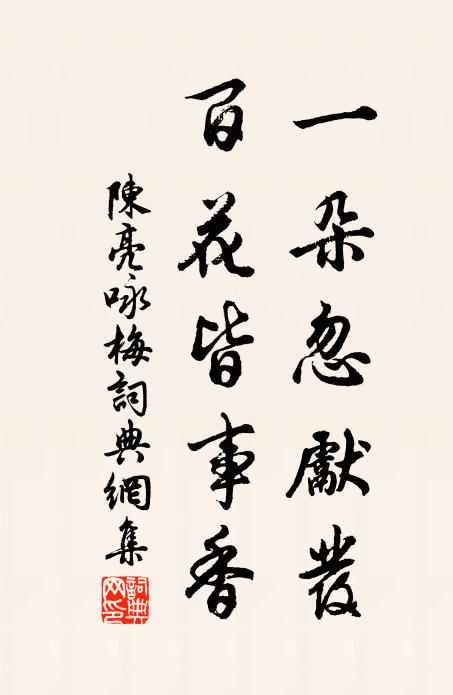 一朵忽獻發
百花皆事香
陳亮咏梅詞典網集
詞典網印